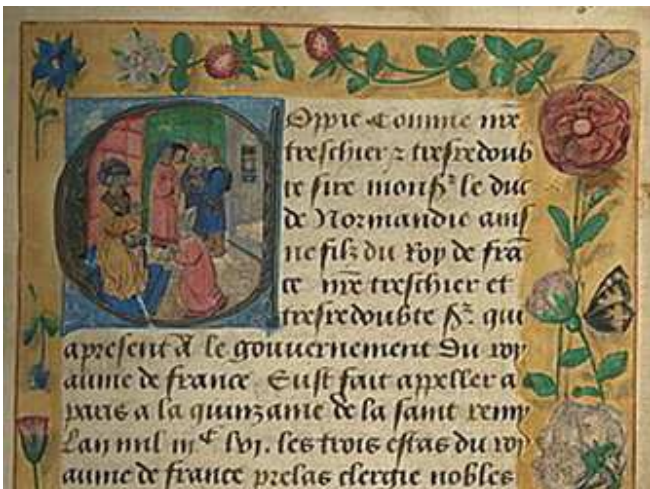 Oppie Comme nre
treschier ⁊ tresredoub
te sire mons le duc
de Normandie ains
ne filz du Roy de fra
ce nre treschier et
tresredoubte s qui
apresent A le gouvernement Du roy
aume de france. Eust fait appeller a
paris a la quinzame de la saint remy
Lan mil iiic lvi. les trois estas du roy
aume de france prelas clergie nobles